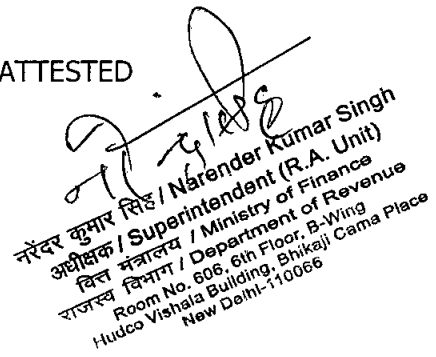 ATTESTED
नरेंदर कुमार सिंह / Narender Kumar Singh
अधीक्षक / Superintendent (R.A. Unit)
वित्त मंत्रालय / Ministry of Finance
राजस्व विभाग / Department of Revenue
Room No. 606, 6th Floor, B-Wing
Hudco Vishala Building, Bhikaji Cama Place
New Delhi-110066